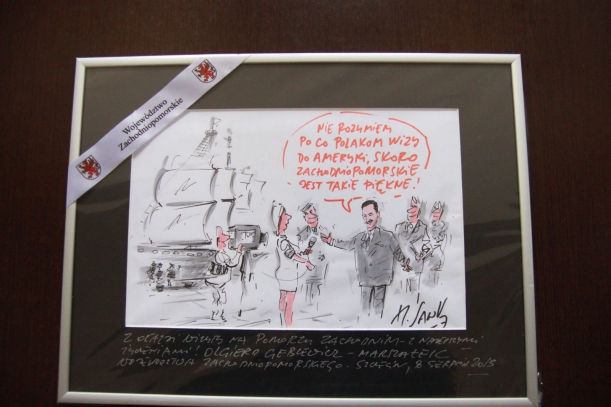 Województwo
Zachodniopomorskie
NIE ROZUMIEM
PO CO POLAKOM WIZY
DO AMERYKI, SKORO
ZACHODNIOPOMORSKIE
JEST TAKIE PIĘKNE!
Z OKAZJI WIZYTY NA POMORZU ZACHODNIM - Z NAJLEPSZYMI
ŻYCZENIAMI! OLGIERD GEBLEWICZ - MARSZAŁEK
WOJEWÓDZTWA ZACHODNIOPOMORSKIEGO. SZCZECIN, 8 SIERPNIA 2015